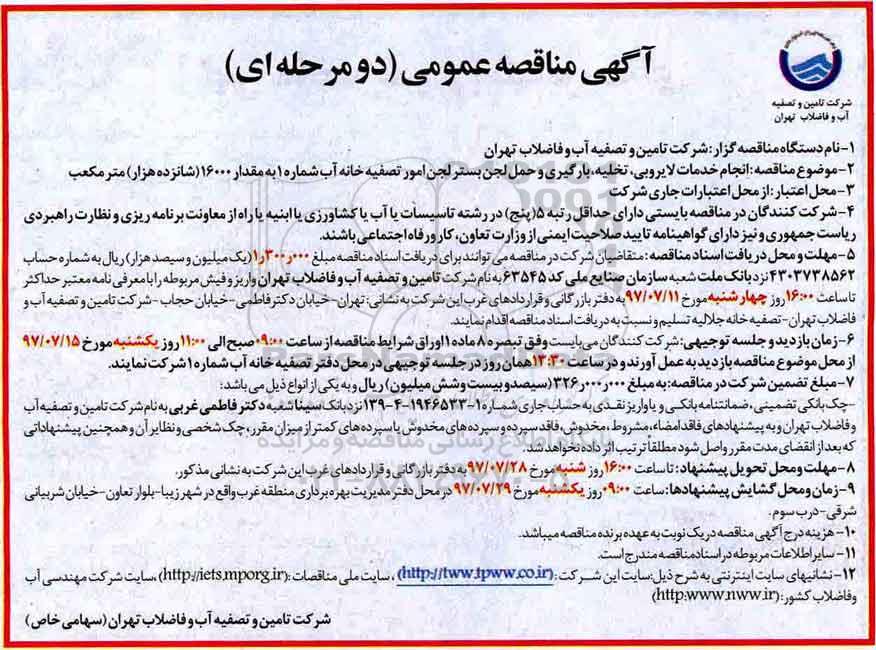 آگهی مناقصه عمومی (دو مرحله ای)
شرکت تامین و تصفیه
آب و فاضلاب تهران
۱- نام دستگاه مناقصه گزار: شرکت تامین و تصفیه آب و فاضلاب تهران
۲- موضوع مناقصه: انجام خدمات لایروبی، تخلیه، بارگیری و حمل لجن بستر لجن امور تصفیه خانه آب شماره ۱ به مقدار ۱۶۰۰۰ (شانزده هزار) متر مکعب
۳- محل اعتبار: از محل اعتبارات جاری شرکت
۴- شرکت کنندگان در مناقصه بایستی دارای حداقل رتبه ۵ (پنج) در رشته تاسیسات یا آب یا کشاورزی یا ابنیه یا راه از معاونت برنامه ریزی و نظارت راهبردی
ریاست جمهوری و نیز دارای گواهینامه تایید صلاحیت ایمنی از وزارت تعاون، کار و رفاه اجتماعی باشند.
۵- مهلت و محل دریافت اسناد مناقصه: متقاضیان شرکت در مناقصه می توانند برای دریافت اسناد مناقصه مبلغ ۱٫۳۰۰٫۰۰۰ (یک میلیون و سیصد هزار) ریال به شماره حساب
۴۳۰۳۷۳۸۵۶۲ نزد بانک ملت شعبه سازمان صنایع ملی کد ۶۳۵۴۵ به نام شرکت تامین و تصفیه آب و فاضلاب تهران واریز و فیش مربوطه را با معرفی نامه معتبر حداکثر
تا ساعت ۱۶:۰۰ روز چهارشنبه مورخ ۹۷/۰۷/۱۱ به دفتر بازرگانی و قراردادهای غرب این شرکت به نشانی: تهران- خیابان دکتر فاطمی- خیابان حجاب- شرکت تامین و تصفیه آب و
فاضلاب تهران- تصفیه خانه جلالیه تسلیم و نسبت به دریافت اسناد مناقصه اقدام نمایند.
۶- زمان بازدید و جلسه توجیهی: شرکت کنندگان می بایست وفق تبصره ۸ ماده ۱ اوراق شرایط مناقصه از ساعت ۰۹:۰۰ صبح الی ۱۱:۰۰ روز یکشنبه مورخ ۹۷/۰۷/۱۵
از محل موضوع مناقصه بازدید به عمل آورند و در ساعت ۱۳:۳۰ همان روز در جلسه توجیهی در محل دفتر تصفیه خانه آب شماره ۱ شرکت نمایند.
۷- مبلغ تضمین شرکت در مناقصه: به مبلغ ۳۲۶٫۰۰۰٫۰۰۰ (سیصد و بیست و شش میلیون) ریال و به یکی از انواع ذیل می باشد:
-چک بانکی تضمینی، ضمانتنامه بانکی و یا واریز نقدی به حساب جاری شماره ۱-۱۹۴۶۵۳۳-۴-۱۳۹ نزد بانک سینا شعبه دکتر فاطمی غربی به نام شرکت تامین و تصفیه آب
و فاضلاب تهران و به پیشنهادهای فاقد امضاء، مشروط، مخدوش، فاقد سپرده و سپرده های مخدوش یا سپرده های کمتر از میزان مقرر، چک شخصی و نظایر آن و همچنین پیشنهاداتی
که بعد از انقضای مدت مقرر واصل شود مطلقاً ترتیب اثر داده نخواهد شد.
۸- مهلت و محل تحویل پیشنهاد: تا ساعت ۱۶:۰۰ روز شنبه مورخ ۹۷/۰۷/۲۸ به دفتر بازرگانی و قراردادهای غرب این شرکت به نشانی مذکور.
۹- زمان و محل گشایش پیشنهادها: ساعت ۰۹:۰۰ روز یکشنبه مورخ ۹۷/۰۷/۲۹ در محل دفتر مدیریت بهره برداری منطقه غرب واقع در شهر زیبا- بلوار تعاون- خیابان شربیانی
شرقی- درب سوم.
۱۰- هزینه درج آگهی مناقصه در یک نوبت به عهده برنده مناقصه میباشد.
۱۱- سایر اطلاعات مربوطه در اسناد مناقصه مندرج است.
۱۲- نشانیهای سایت اینترنتی به شرح ذیل: سایت این شرکت: (http://tww.tpww.co.ir) ، سایت ملی مناقصات: (http://iets.mporg.ir) ، سایت شرکت مهندسی آب
وفاضلاب کشور: (http:www.nww.ir)
شرکت تامین و تصفیه آب و فاضلاب تهران (سهامی خاص)